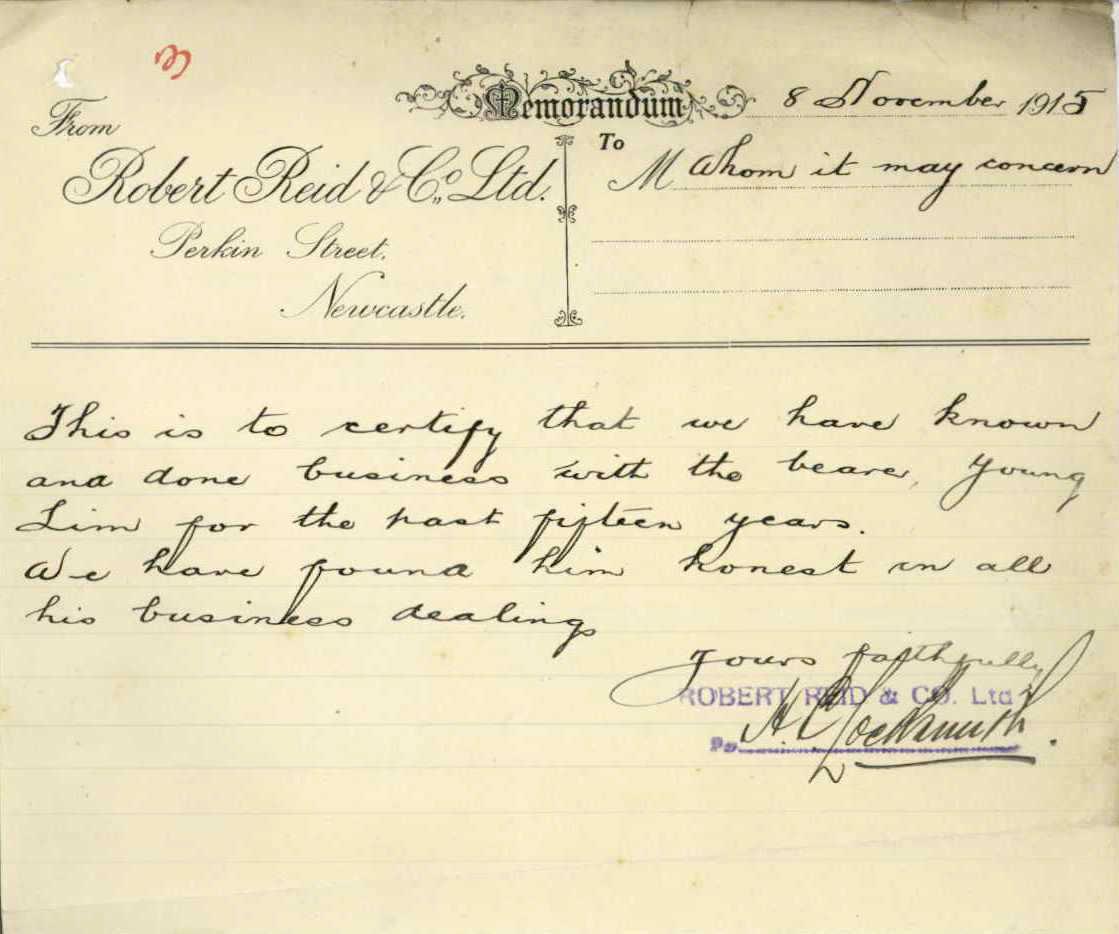 3
Memorandum
8 November 1915
From
Robert Reid & Co. Ltd.
Perkin Street.
Newcastle.
To
M Whom it may concern
This is to certify that we have known
and done business with the bearer, Young
Lim for the past fifteen years.
We have found him honest in all
his business dealings
Yours faithfully
ROBERT REID & CO. Ltd
Per